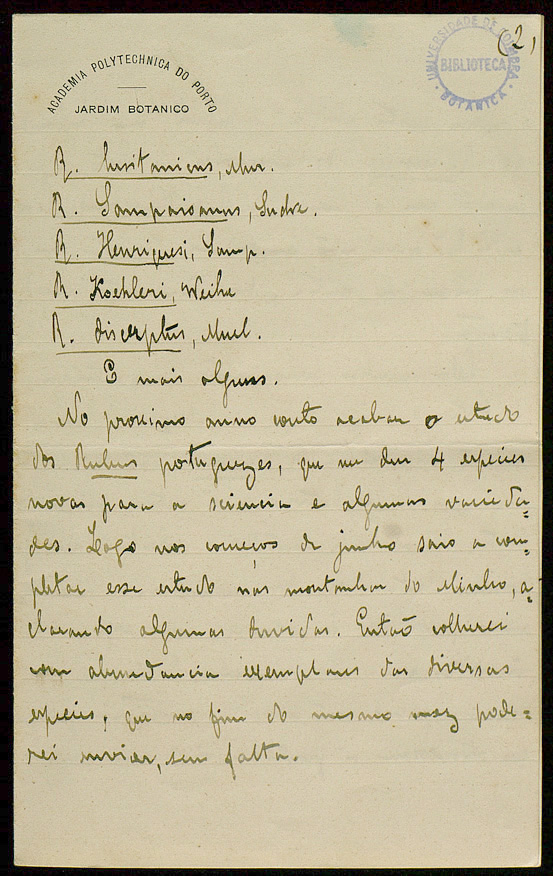 (2)
UNIVERSIDADE DE COIMBRA
BIBLIOTECA
BOTANICA
ACADEMIA POLYTECHNICA DO PORTO
JARDIM BOTANICO
R. lusitanicus, Mur.
R. Sampaioanus, Sudre.
R. Henriquesi, Samp.
R. Koehleri, Weihe
R. discerptus, Muel.
E mais alguns.
No proximo anno conto acabar o estudo
dos Rubus portuguezes, que me deu 4 especies
novas para a sciencia e algumas varieda-
des. Logo nos começos de junho saio a com-
pletar esse estudo nas montanhas do Minho, a-
clarando algumas duvidas. Então colherei
com abundancia exemplares das diversas
especies, que no fim do mesmo mez pode-
rei enviar, sem falta.